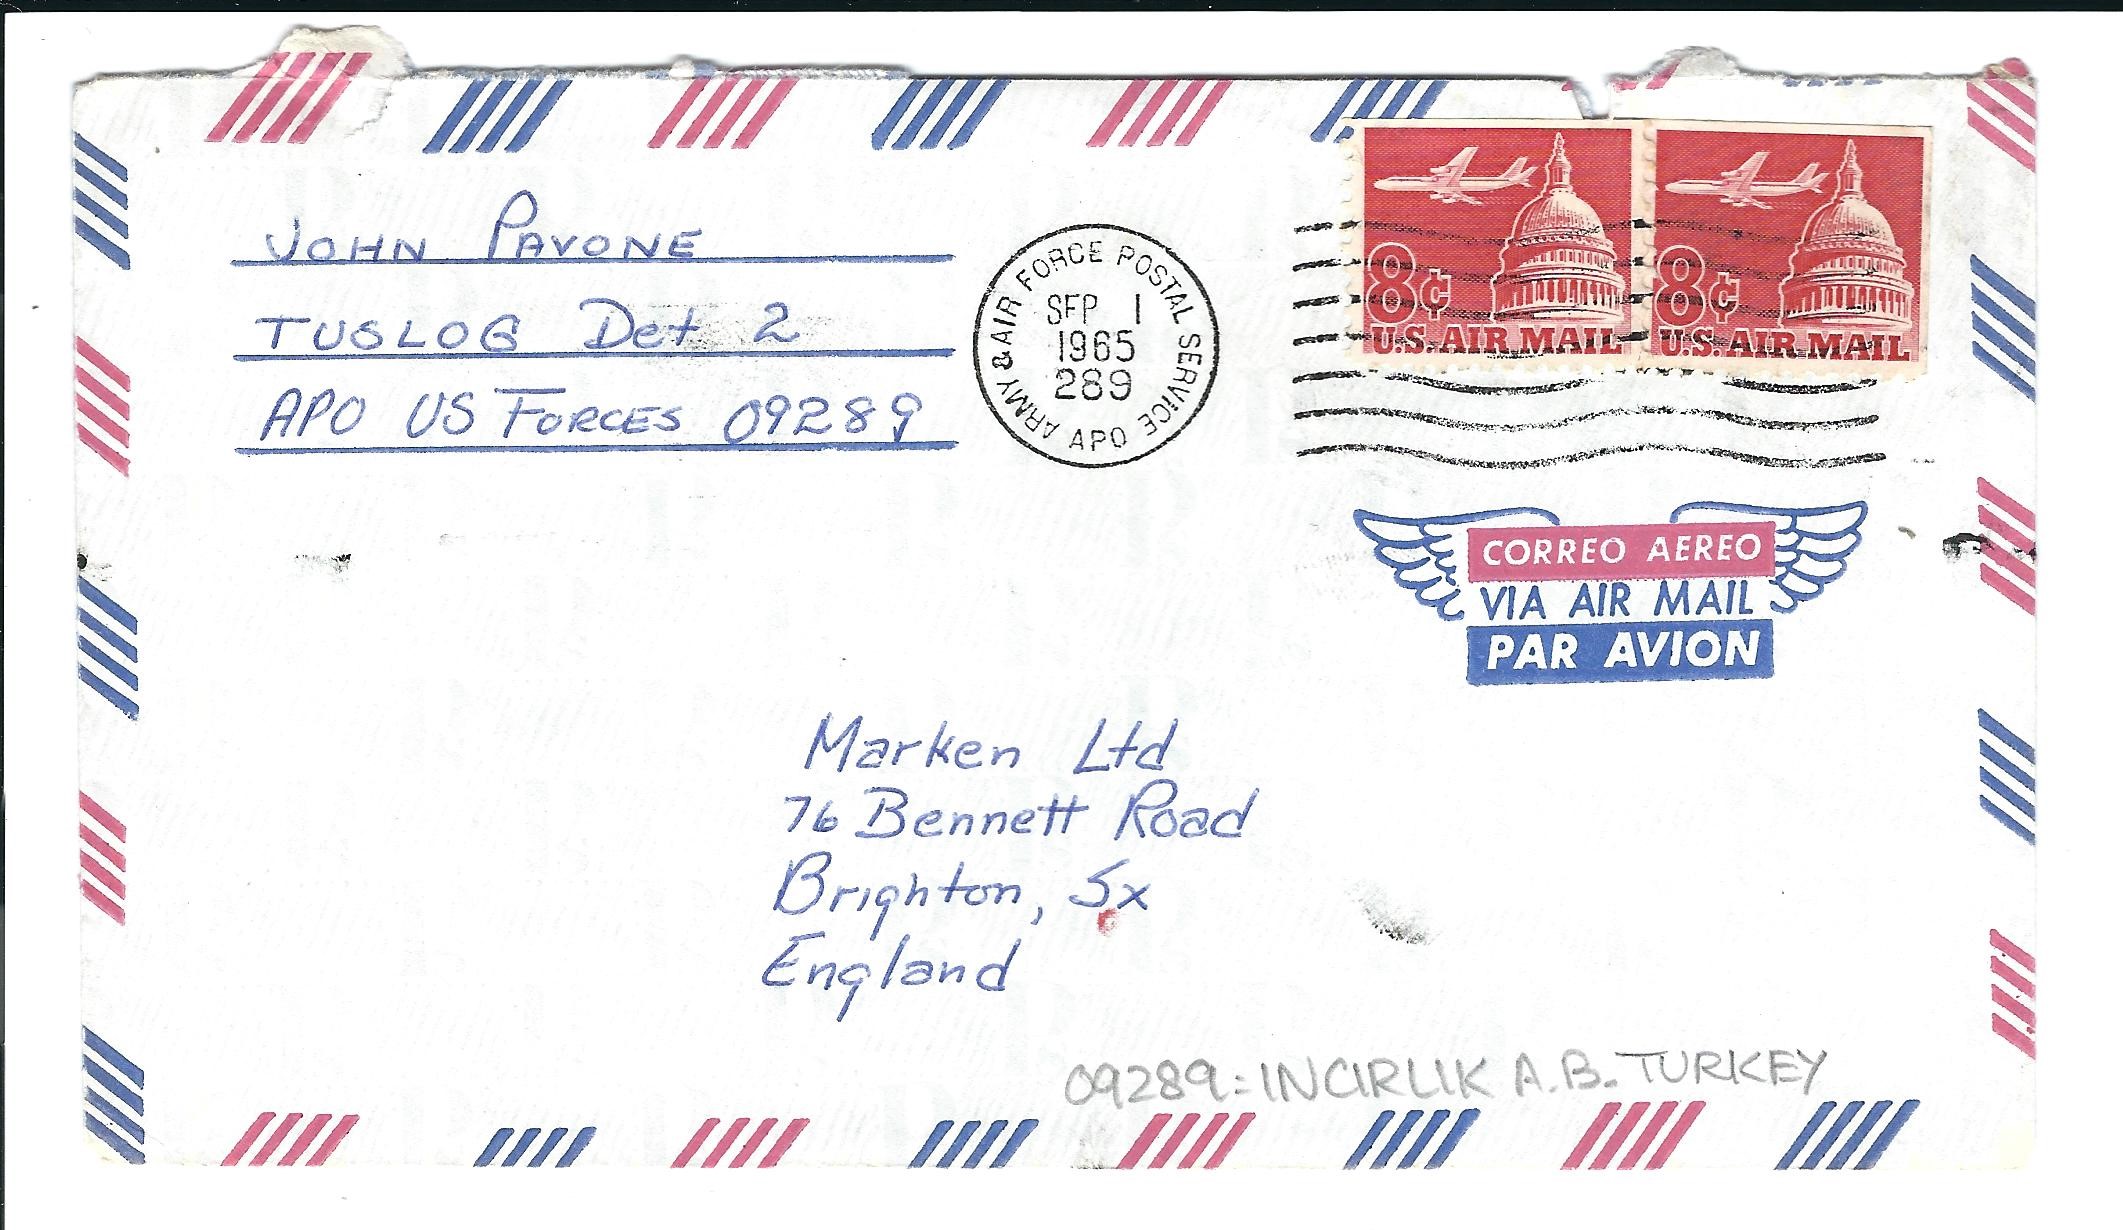 JOHN PAVONE
TUSLOG Det 2
APO US FORCES 09289
ARMY & AIR FORCE POSTAL SERVICE
SEP 1
1965
289
APO
8¢ 8¢
U.S. AIR MAIL U.S. AIR MAIL
CORREO AEREO
VIA AIR MAIL
PAR AVION
Marken Ltd
76 Bennett Road
Brighton, Sx
England
09289 = INCIRLIK A.B. TURKEY